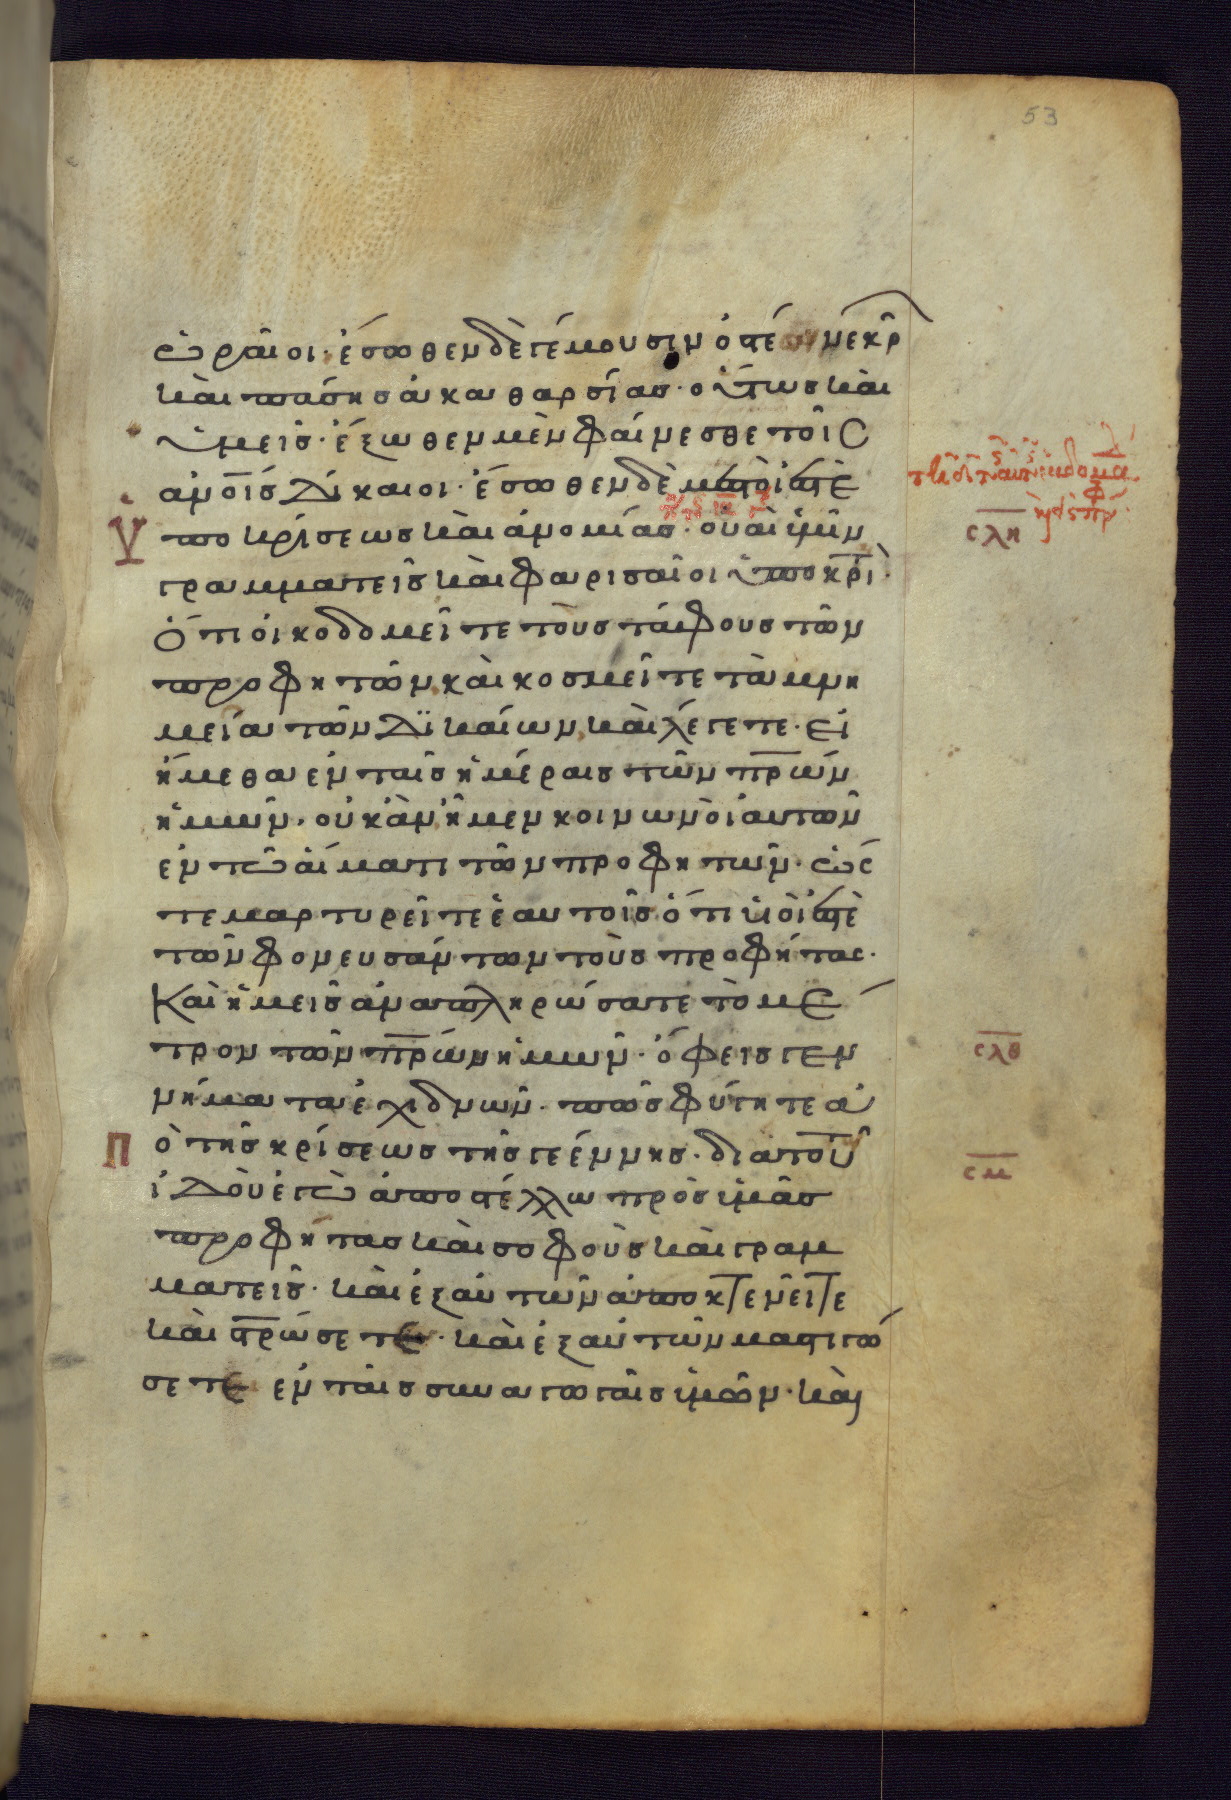 53
ὡραῖοι· ἔσωθεν δὲ γέμουσιν ὀστέων νεκρ
καὶ πάσης ἀκαθαρσίας· οὕτως καὶ
ὑμεῖς· ἔξωθεν μὲν φαίνεσθε τοῖς
ἀνοῖς δίκαιοι· ἔσωθεν δὲ μεστοί ἐστὲ
ὑποκρίσεως καὶ ἀνομίας· οὐαὶ ὑμῖν
σλη
γραμματεῖς καὶ φαρισαῖοι ὑποκρι·
ὅτι οἰκοδομεῖτε τοὺς τάφους τῶν
προφητῶν καὶ κοσμεῖτε τὰ μνη
μεία τῶν δϊκαίων, καὶ λέγετε· εἰ
ἤμεθα ἐν ταῖς ἡμέραις τῶν πρων
ἡμῶν· οὐκ ἂν ἦμεν κοινωνοὶ αὐτῶν
ἐν τῶ αἵματι τῶν προφητῶν· ὥς
τε μαρτυρεῖτε ἑαυτοῖς ὅτι υἱοί ἐστὲ
τῶν φονευσάντων τοὺς προφήτας·
Καὶ ἡμεῖς ἀναπληρώσατε τὸ μέ
τρον τῶν πρων ἡμῶν· ὄφεις γεν
σλθ
νήματα ἐχιδνῶν· πῶς φύγητε ἀ
πὸ τῆς κρίσεως τῆς γεέννης· διατοῦ
σμ
ἰδοὺ ἐγὼ ἀποστέλλω πρὸς ὑμᾶς
προφήτας καὶ σοφοὺς καὶ γραμ
ματεῖς· καὶ ἐξ αὐτῶν ἀποκτενεῖτε
καὶ στρώσετε· καὶ ἐξ αὐτῶν μαστιγώ
σετε ἐν ταῖς συναγωγαῖς ὑμῶν· καὶ